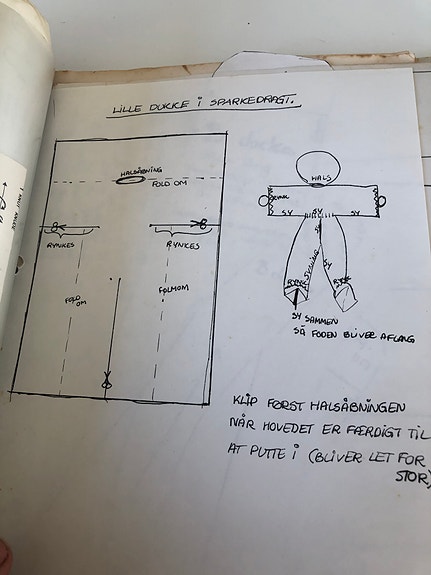 LILLE DUKKE i SPARKEDRAGT.
HALSÅBNING
FOLD OM
RYNKES
RYNKES
FOLD
OM
HALS
SY
SY
SY
SY
RYNK
SY SAMMEN
SÅ FODEN BLIVER AFLANG
KLIP FØRST HALSÅBNINGEN
NÅR HOVEDET ER FÆRDIGT TIL
AT PUTTE i (BLIVER LET FOR
STOR)